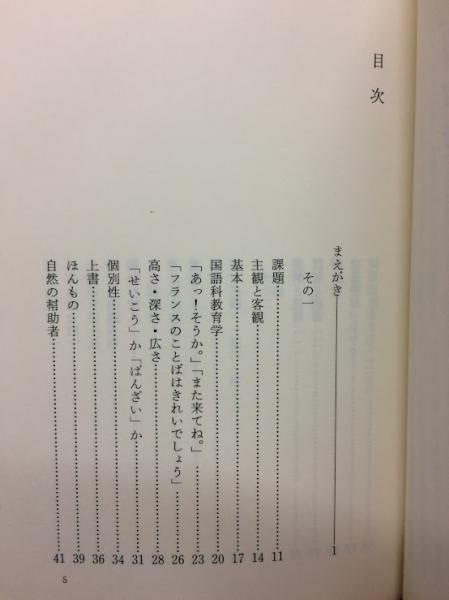 目次
まえがき……1
その一
課題……11
主観と客観……14
基本……17
国語科教育学……20
「あっ！そうか。」「また来てね。」……23
「フランスのことばはきれいでしょう」……26
高さ・深さ・広さ……28
「せいこう」か「ばんざい」か……31
個別性……34
上書……36
ほんもの……39
自然の幇助者……41
5